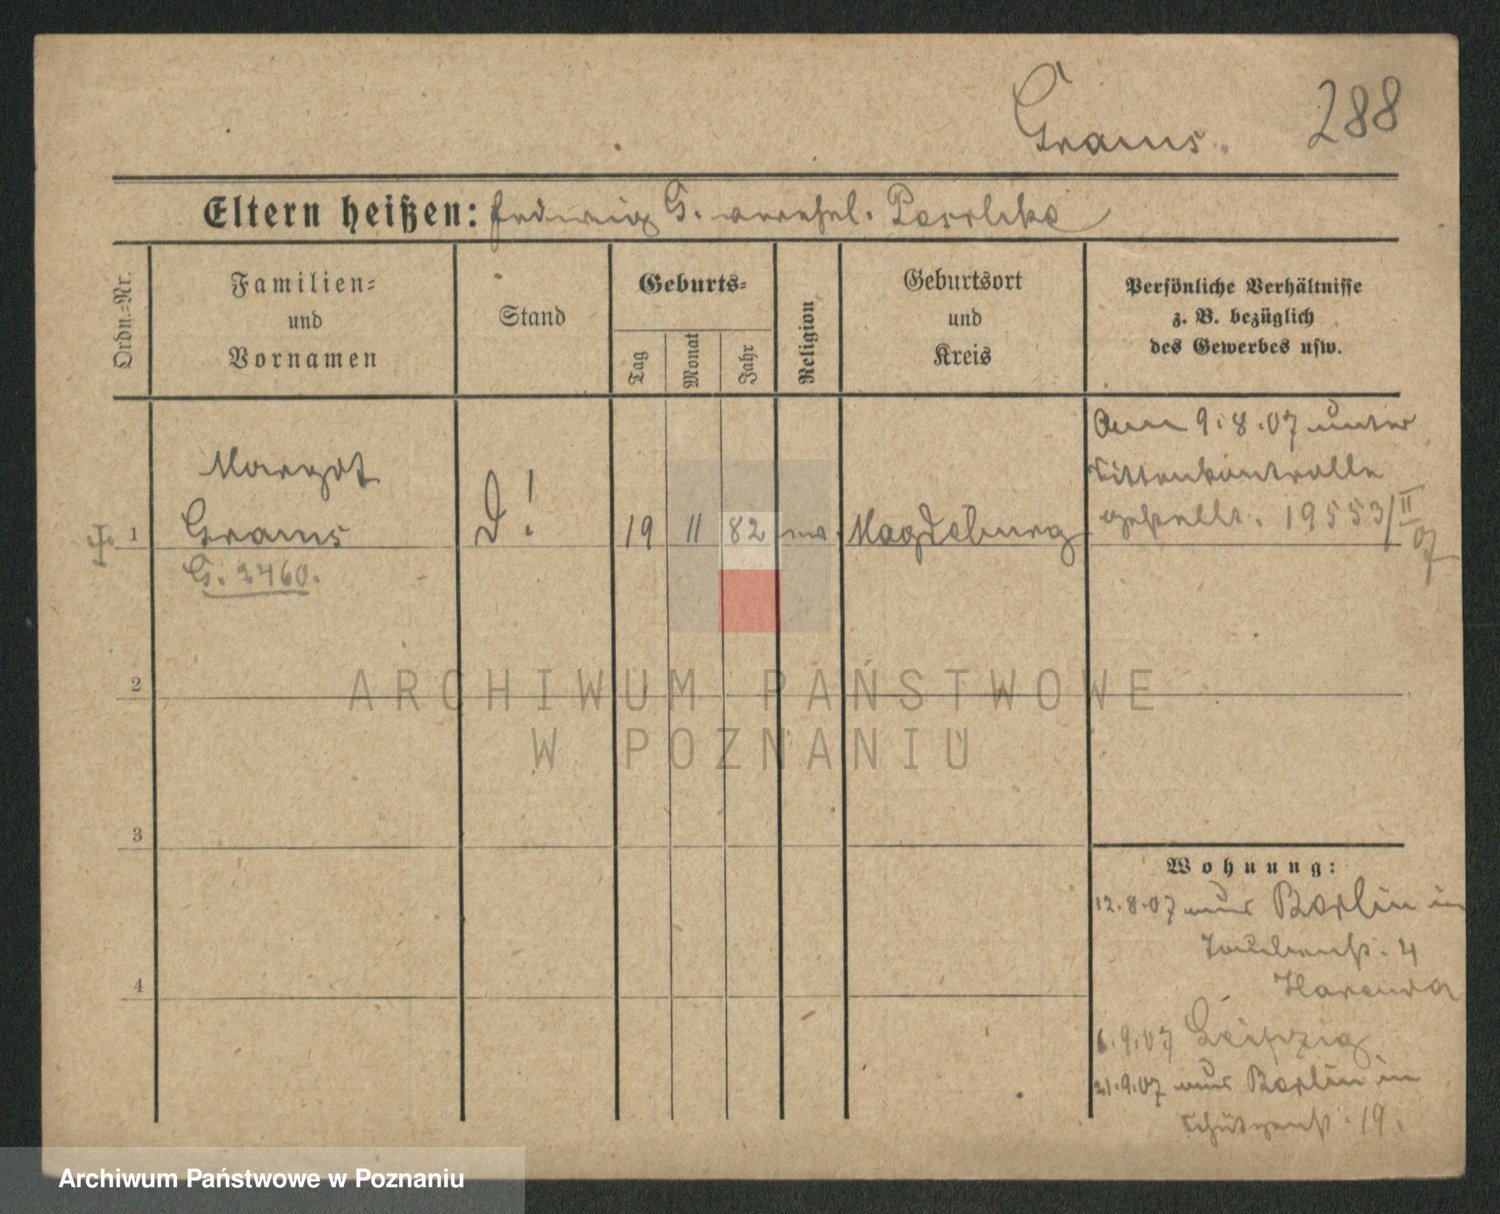 Grams. 288
Eltern heißen: Hedwig G. verehel. Paschke
Ordn.-Nr.
Familien-
und
Vornamen
Stand
Geburts-
Tag
Monat
Jahr
Religion
Geburtsort
und
Kreis
Persönliche Verhältnisse
z. B. bezüglich
des Gewerbes usw.
Am 9.8.07 unter
Sittenkontrolle
gestellt. 19553/II
07
Margot
1 Grams D! 19 11 82 Magdeburg
G. 2460.
2
3
4
Wohnung:
12.8.07 aus Berlin in
Taubenstr. 4
6.9.07 Leipzig
21.9.07 aus Berlin in
Schützenstr. 19.
ARCHIWUM PAŃSTWOWE
W POZNANIU
Archiwum Państwowe w Poznaniu